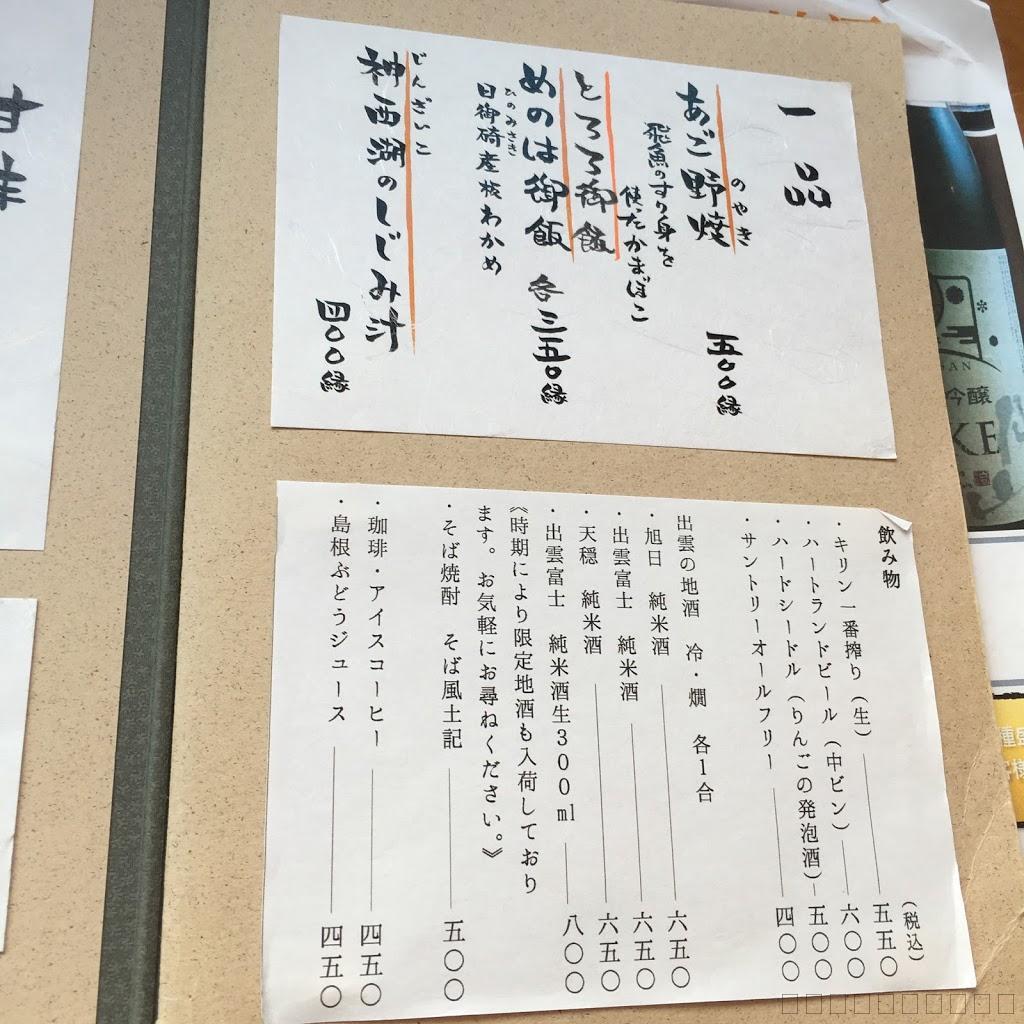 甘味
一品
のやき
あご野焼
飛魚のすり身を
使ったかまぼこ
五〇〇縁
とろろ御飯
めのは御飯
各三五〇縁
ひのみさき
日御碕産板わかめ
じんざいこ
神西湖のしじみ汁
四〇〇縁
飲み物
(税込)
・キリン一番搾り(生) 五五〇
・ハートランドビール(中ビン) 六〇〇
・ハードシードル(りんごの発泡酒) 五〇〇
・サントリーオールフリー 四〇〇
出雲の地酒 冷・燗 各1合
・旭日 純米酒 六五〇
・出雲富士 純米酒 六五〇
・天穏 純米酒 六五〇
・出雲富士 純米酒生300ml 八〇〇
《時期により限定地酒も入荷しており
ます。お気軽にお尋ねください。》
・そば焼酎 そば風土記 五〇〇
・珈琲・アイスコーヒー 四五〇
・島根ぶどうジュース 四五〇
吟醸